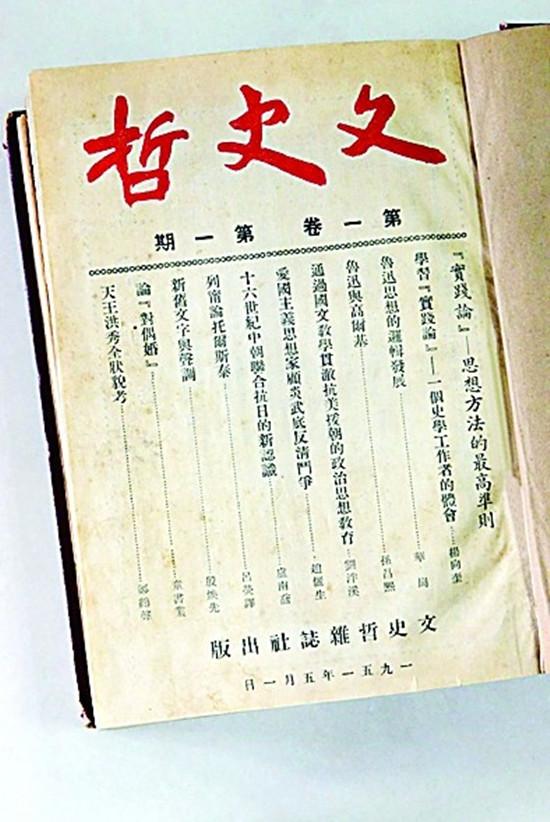 文史哲
第一卷 第一期
『實踐論』——思想方法的最高準則
學習『實踐論』——一個史學工作者的體會……楊向奎
魯迅思想的邏輯發展……華崗
魯迅與高爾基……孫昌熙
通過國文教學貫澈抗美援朝的政治思想教育……劉泮溪
愛國主義思想家顧炎武底反清鬥爭……趙儷生
十六世紀中朝聯合抗日的新認識……盧南喬
列甯論托爾斯泰……呂熒譯
新舊文字與聲調……殷煥先
論『對偶婚』……童書業
天王洪秀全狀貌考……鄭鶴聲
文史哲雜誌社出版
一九五一年五月一日